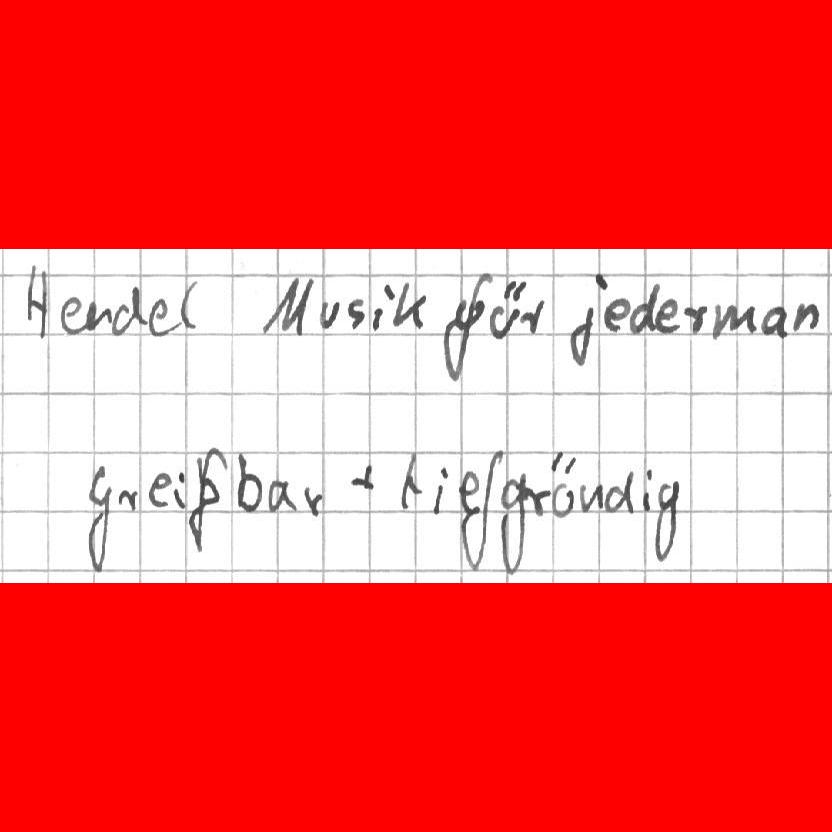 Hendel Musik für jederman
greißbar + tiefgründig